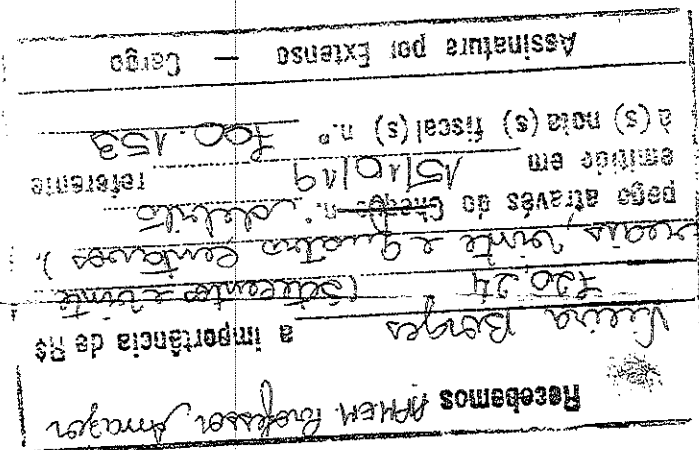 Recebemos APMEM Professor Amazor
Vieira Borges a importância de R$
720,24 (Setecentos e vinte
reais, vinte e quatro centavos).
pago através do Cheque n.º débito
emitido em 15/10/19 referente
à(s) nota(s) fiscal(s) n.º 700.153
Assinatura por Extenso — Cargo